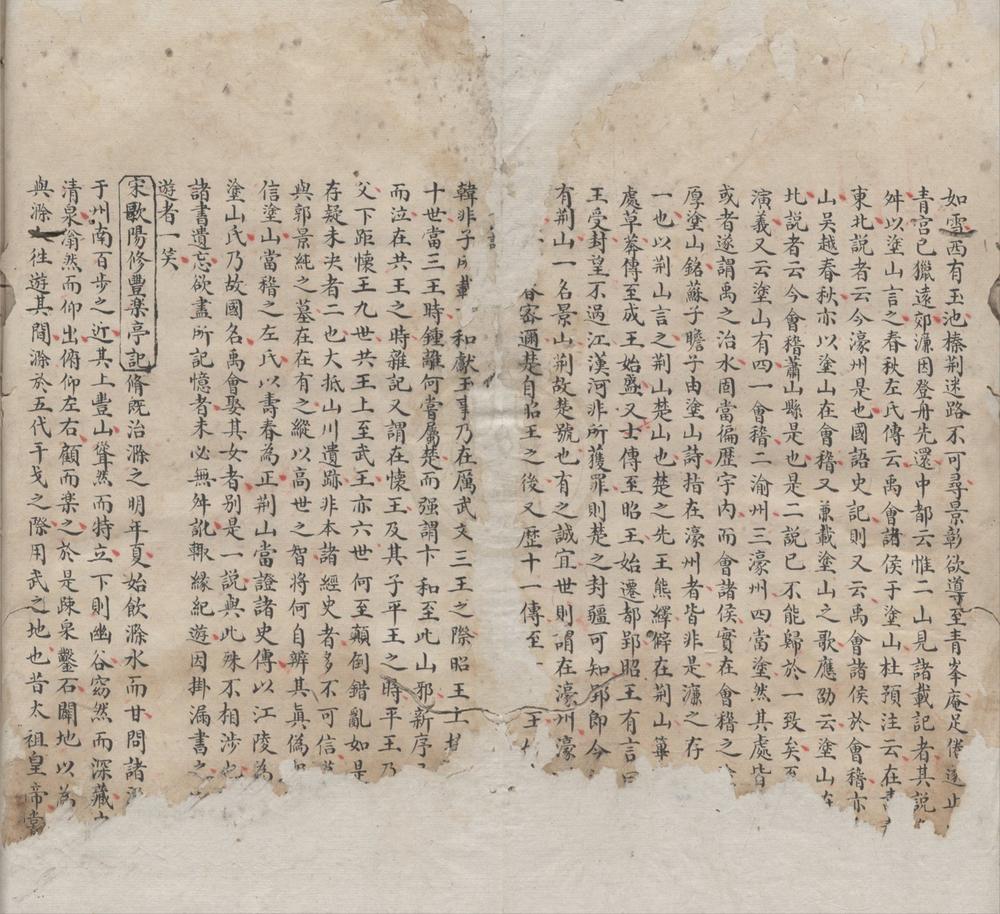 如雪西有玉池榛荆迷路不可尋景彰欲導至青峯庵足倦遂止
青宮已獵遠郊濂因登舟先還中都云惟二山見諸載記者其説
舛以塗山言之春秋左氏傳云禹會諸侯于塗山杜預注云在壽
東北説者云今濠州是也國語史記則又云禹會諸侯於會稽亦
山吳越春秋亦以塗山在會稽又兼載塗山之歌應劭云塗山在
北説者云今會稽蕭山縣是也是二説已不能歸於一致矣至
演義又云塗山有四一會稽二渝州三濠州四當塗然其處皆
或者遂謂禹之治水固當徧歷宇内而會諸侯實在會稽之
厚塗山銘蘇子瞻子由塗山詩指在濠州者皆非是濂之存
一也以荆山言之荆山楚山也楚之先王熊繹辟在荆山篳
處草莽傳至成王始盛又士傳至昭王始遷都郢昭王有言曰
王受封望不過江漢河非所獲罪則楚之封疆可知郢即今
有荆山一名景山荆故楚號也有之誠宜世則謂在濠州濠
春客邇楚自昭王之後又歷十一傳至
韓非子所載和獻玉事乃在厲武文三王之際昭王
十世當三王時鍾離何嘗屬楚而强謂卞和至此山耶新序
而泣在共王之時雜記又謂在懷王及其子平王之時平王乃
父下距懷王九世共王上至武王亦六世何至顛倒錯亂如是
存疑未决者二也大抵山川遺跡非本諸經史者多不可信
與郭景純之墓在在有之縱以高世之智將何自辨其眞偽
信塗山當稽之左氏以壽春為正荆山當證諸史傳以江陵為
塗山氏乃故國名禹會娶其女者别是一説與此殊不相涉也
諸書遺忘欲盡所記憶者未必無舛訛輒緣紀遊因掛漏書之
遊者一笑
宋歐陽修豐楽亭記脩既治滁之明年夏始飲滁水而甘問諸滁
于州南百步之近其上豊山聳然而特立下則幽谷窈然而深藏中
清泉滃然而仰出俯仰左右顧而楽之於是疎泉鑿石闢地以為
與滁人往遊其間滁於五代干戈之際用武之地也昔太祖皇帝嘗